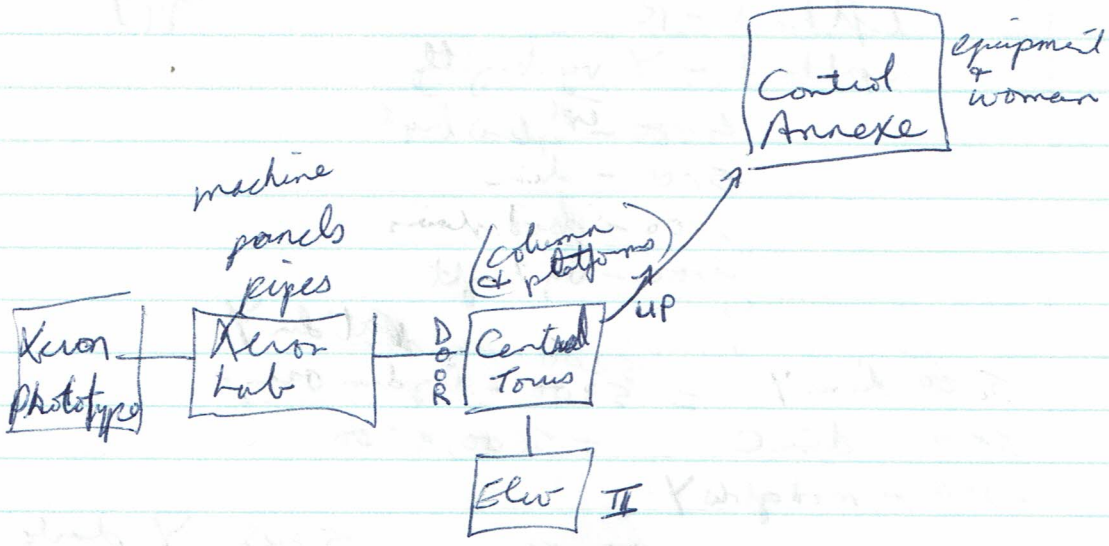 Control
Annexe
equipment
&
woman
machine
panels
pipes
(column
& platforms)
UP
Xeron
Phototype
Xeron
Lab
DOOR
Central
Torus
Elev
II